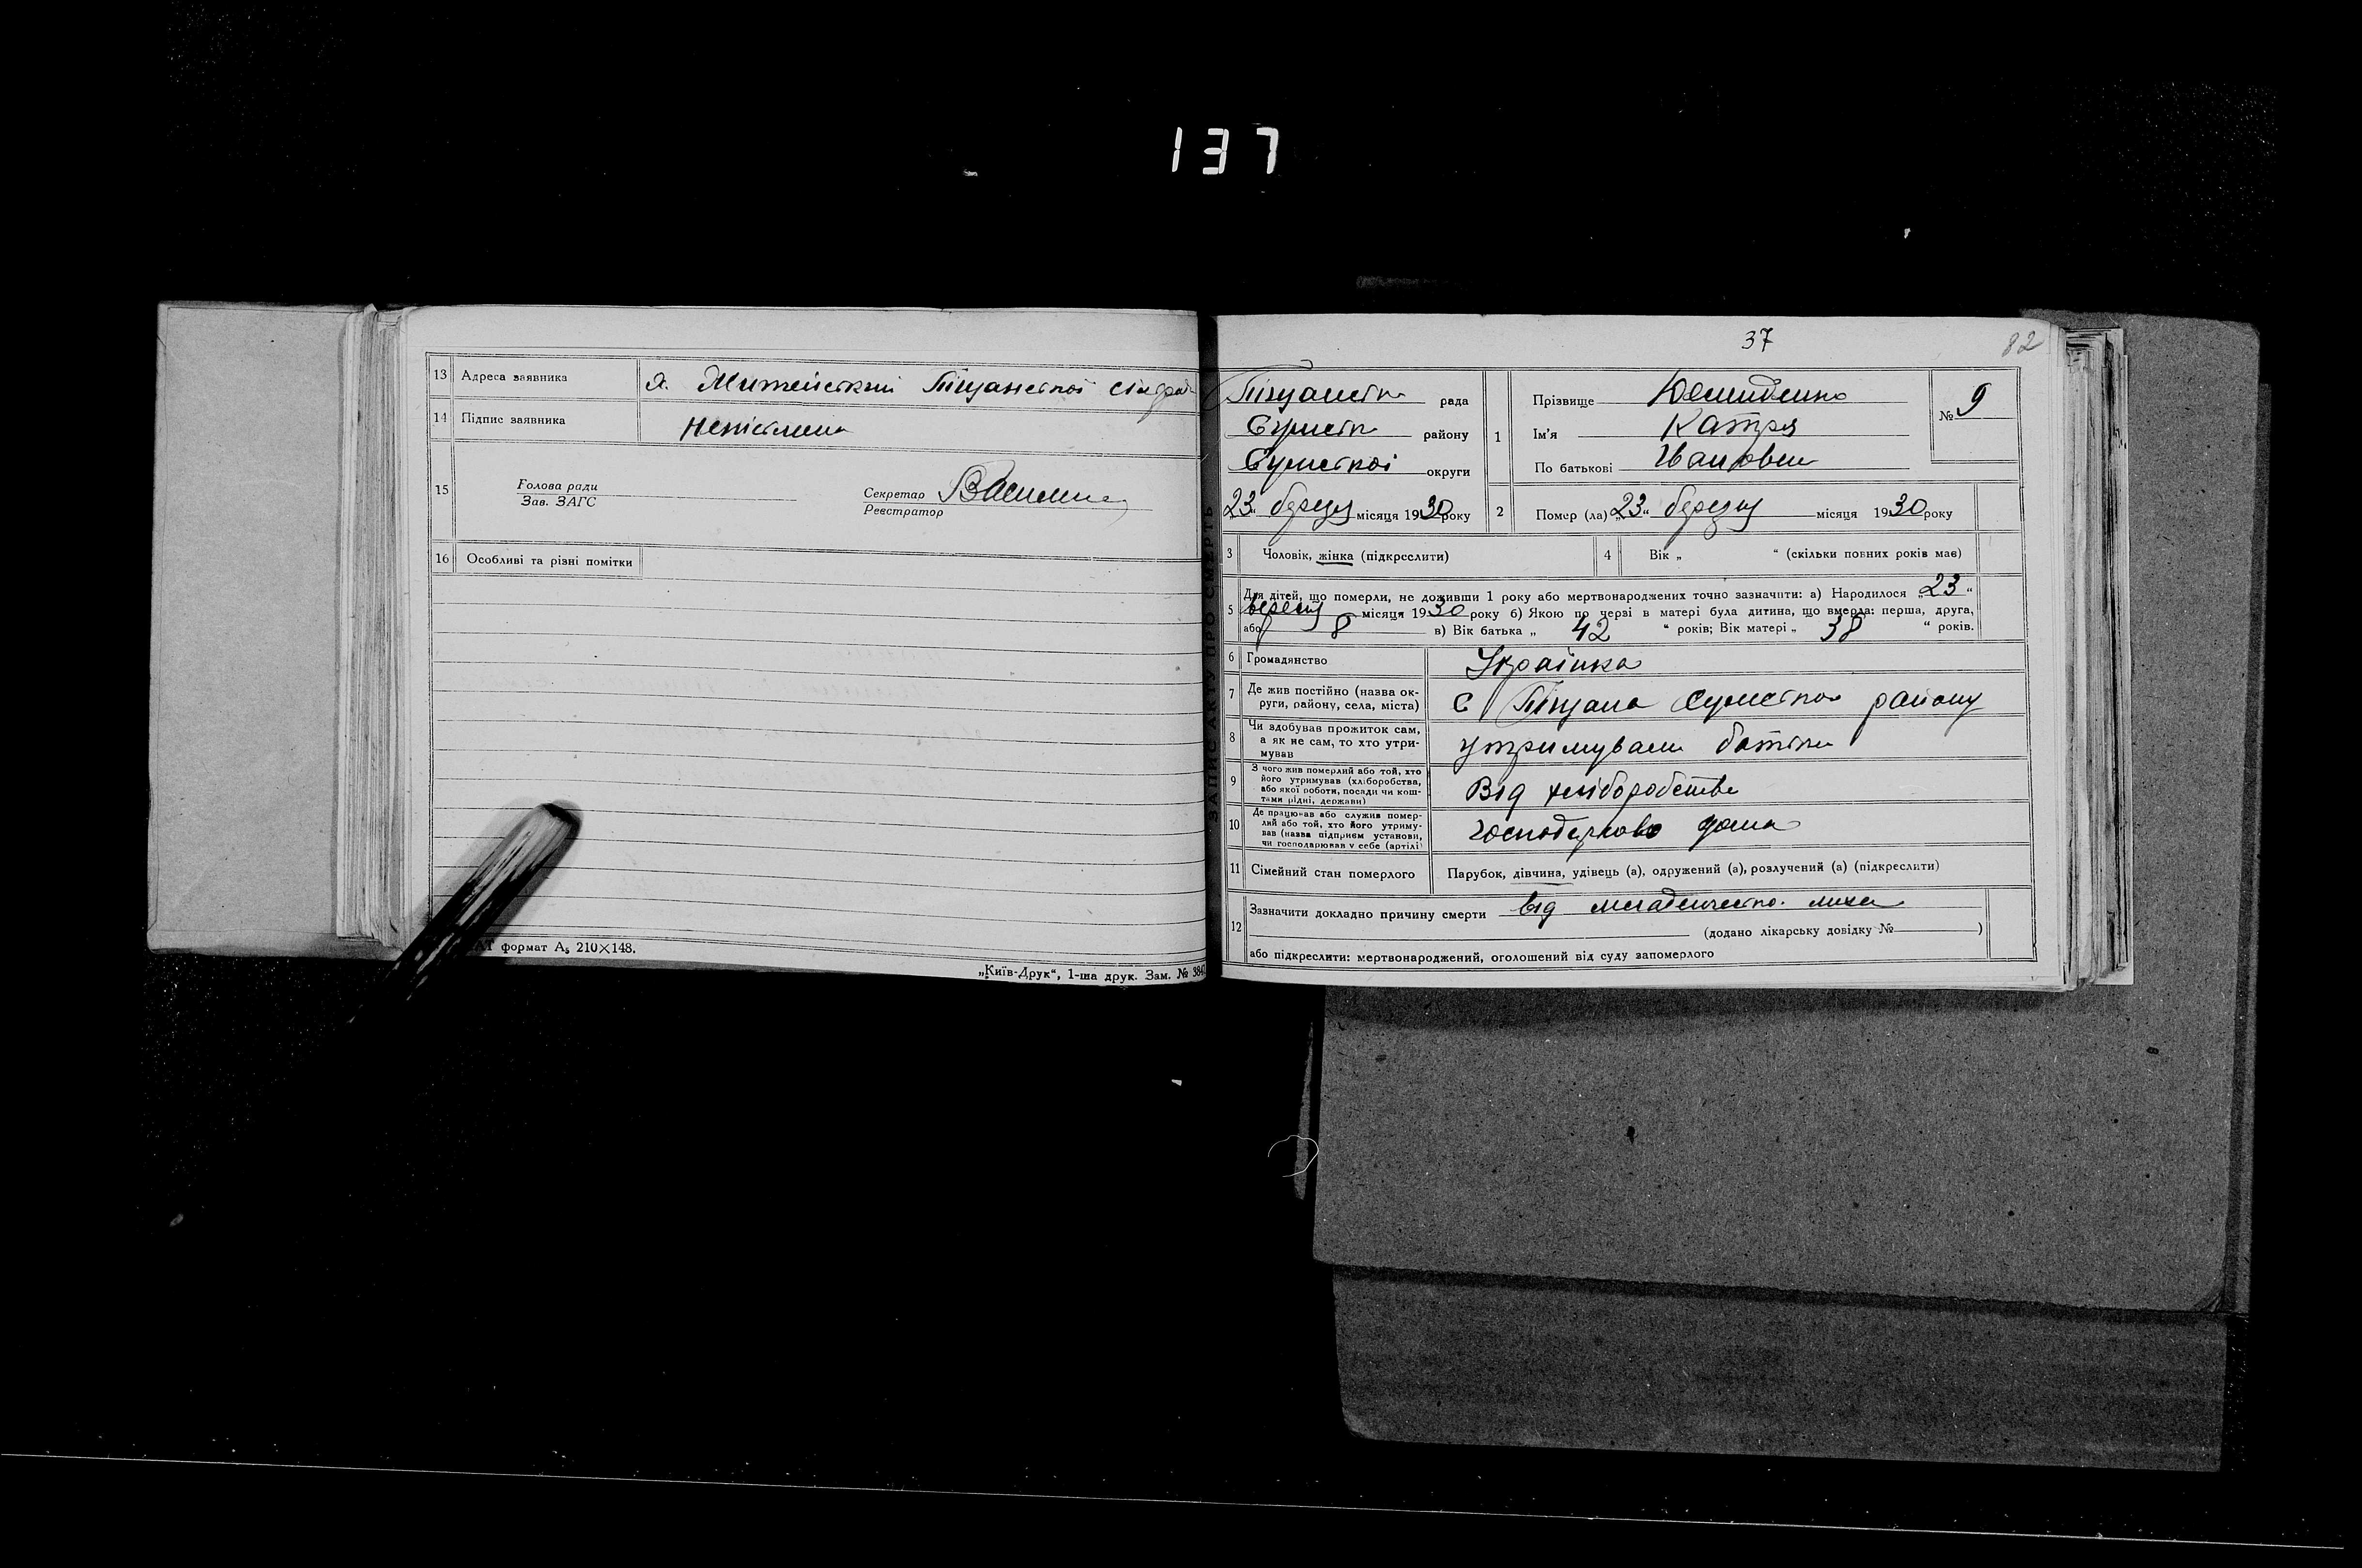 137
13 Адреса заявника Я. Житейський Піщанської сільради
14 Підпис заявника неписьмена
15 Голова ради
Зав. ЗАГС
Секретар
Реєстратор
16 Особливі та різні помітки
формат А₅ 210×148.
„Київ-Друк“, 1-ша друк. Зам. № 384
ЗАПИС АКТУ ПРО СМЕРТЬ
37
82
Піщанськ рада
Сумськ району
Сумської округи
„23“ березня місяця 1930 року
1 Прізвище Демиденко
Ім'я Катря
По батькові Івановна
№ 9
2 Помер (ла) „23“ березня місяця 1930 року
3 Чоловік, жінка (підкреслити)
4 Вік „ “ (скільки повних років має)
5 Для дітей, що померли, не доживши 1 року або мертвонароджених точно зазначити: а) Народилося „23“
березня місяця 1930 року б) Якою по черзі в матері була дитина, що вмерла: перша, друга,
або 8 в) Вік батька „ 42 “ років; Вік матері „ 38 “ років.
6 Громадянство Українка
7 Де жив постійно (назва ок-
руги, району, села, міста) С Піщана Сумського району
8 Чи здобував прожиток сам,
а як не сам, то хто утри-
мував утримували батьки
9 З чого жив померлий або той, хто
його утримував (хліборобства,
або якої роботи, посади чи кош-
тами рідні, держави) Від хліборобства
10 Де працював або служив помер-
лий або той, хто його утриму-
вав (назва підприєм установи,
чи господарював у себе (артілі) господарював дома
11 Сімейний стан померлого Парубок, дівчина, удівець (а), одружений (а), розлучений (а) (підкреслити)
12 Зазначити докладно причину смерти від младенческо. лиха
(додано лікарську довідку № )
або підкреслити: мертвонароджений, оголошений від суду запомерлого